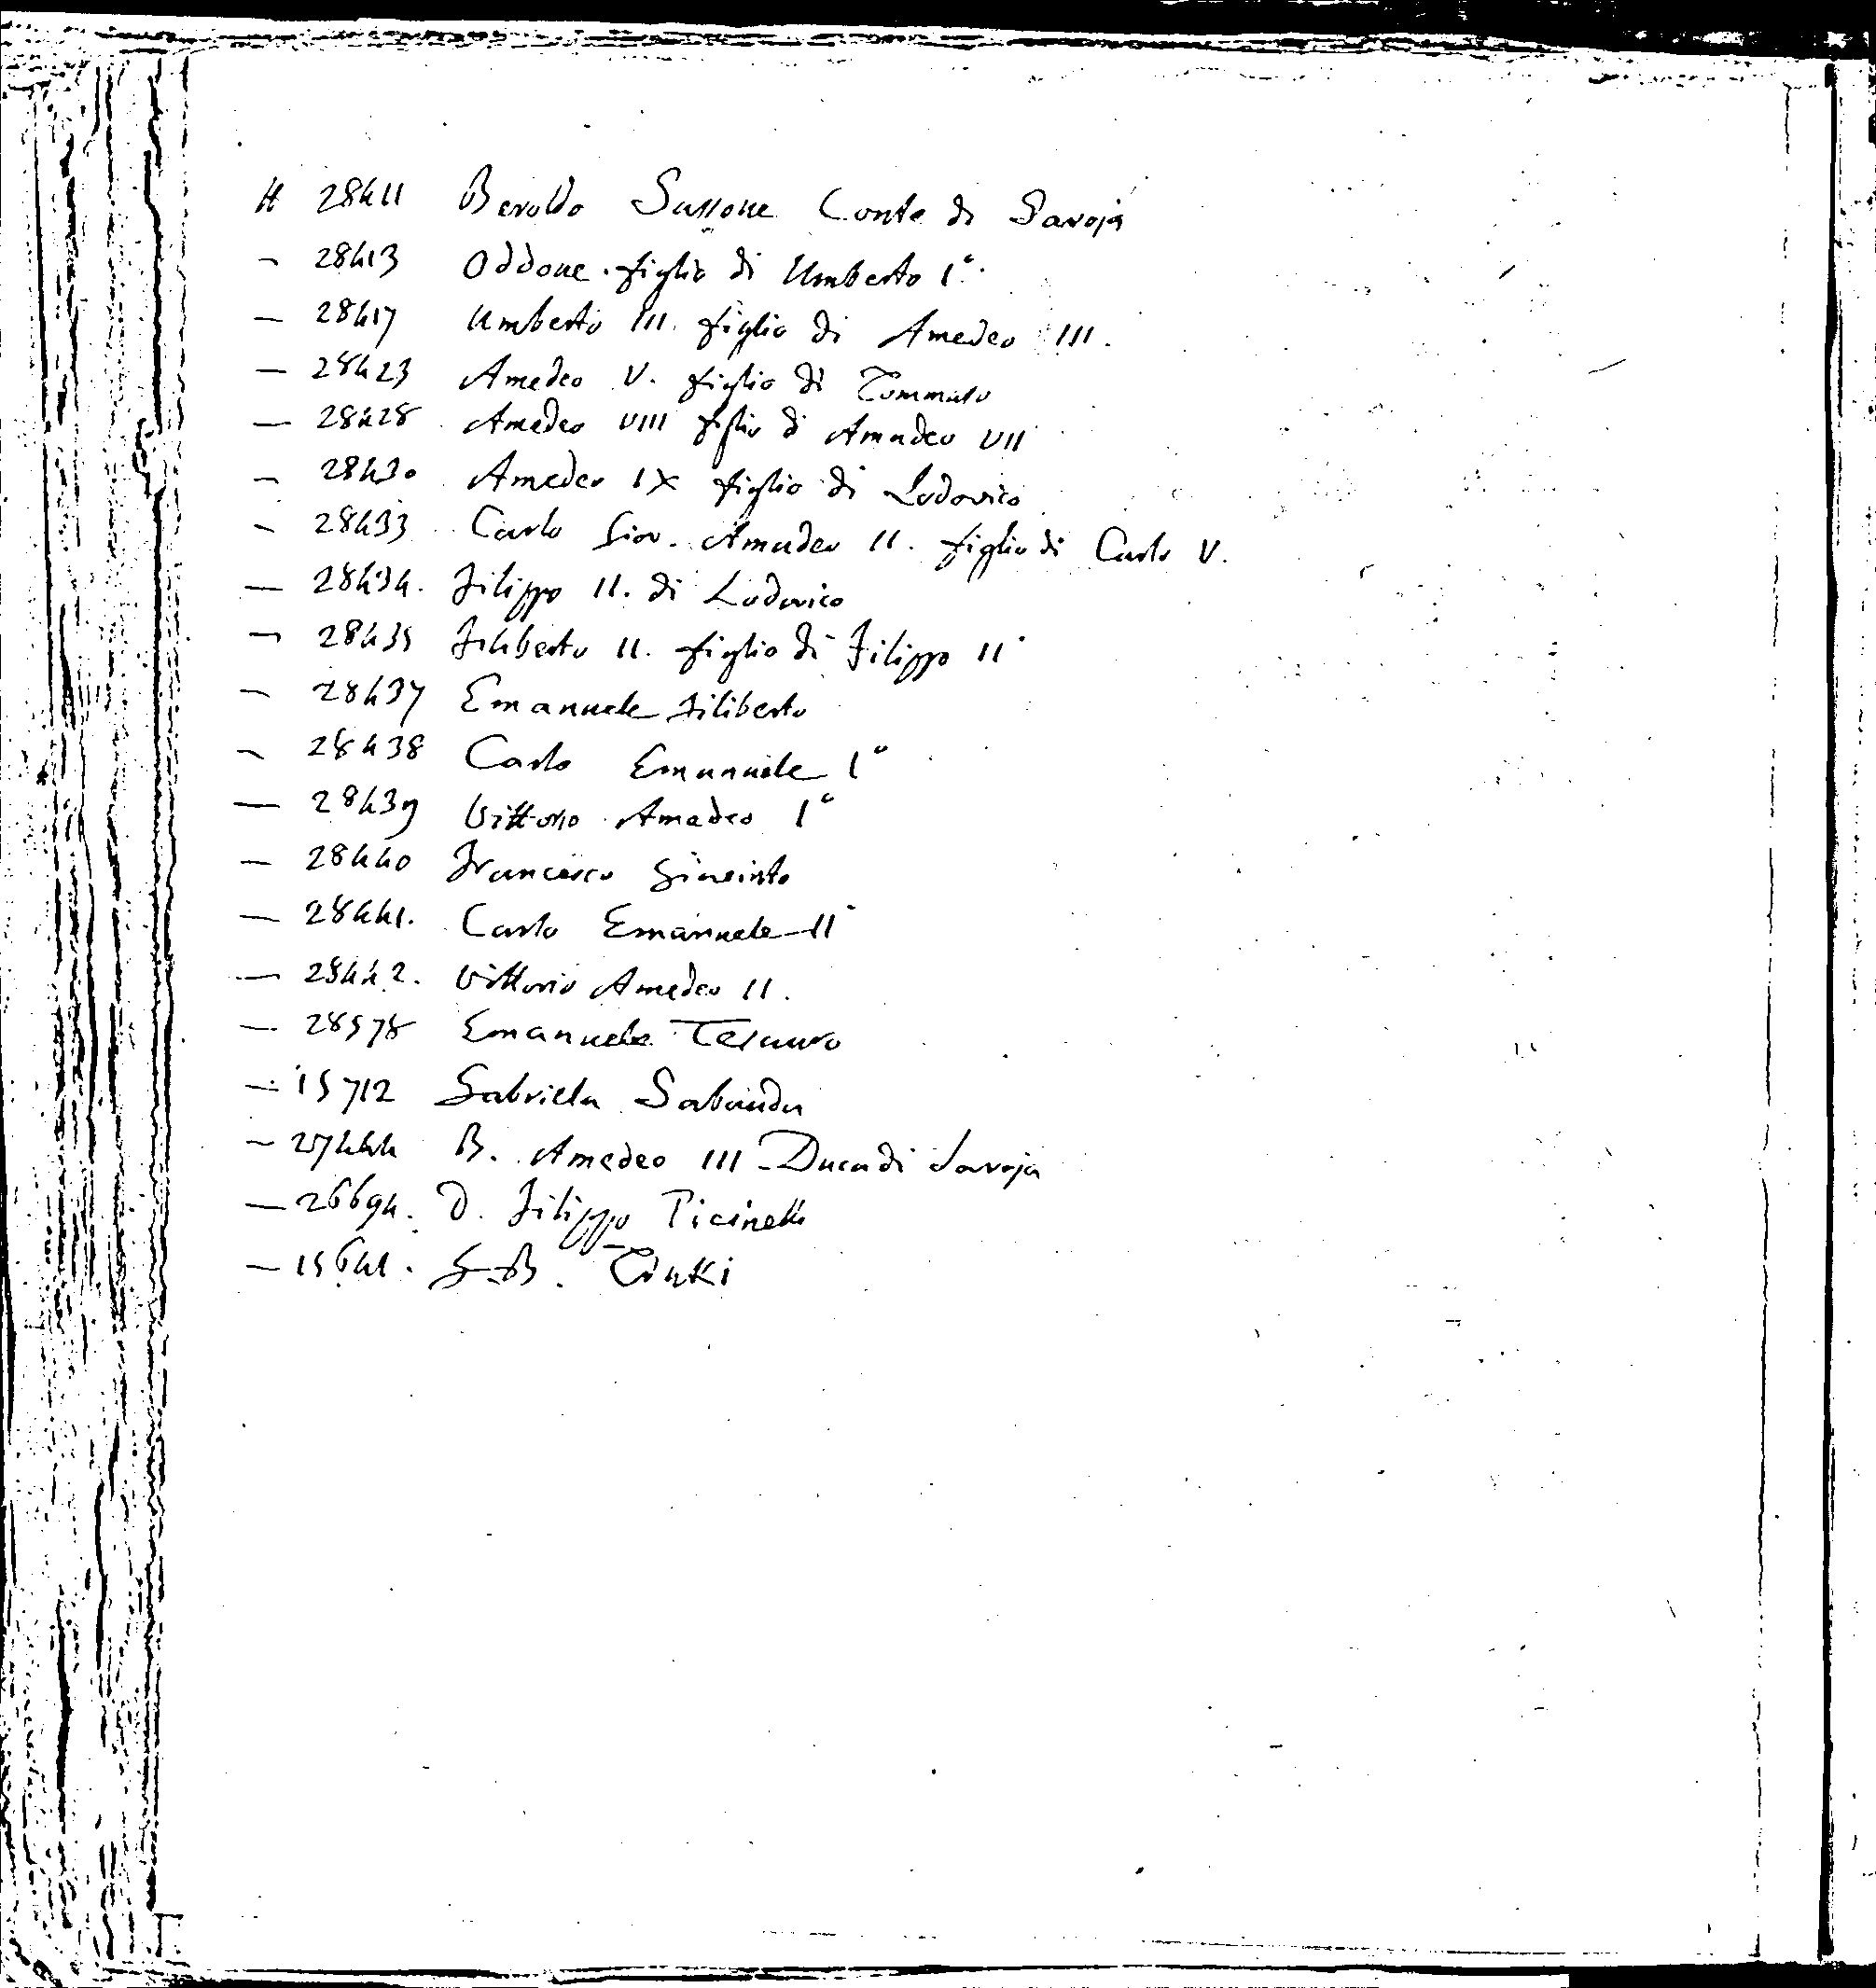 H 28411 Beroldo Sassone Conte di Savoja
— 28413 Oddone figlio di Umberto I°.
— 28417 Umberto III. figlio di Amedeo III.
— 28423 Amedeo V. figlio di Tommaso
— 28428 Amedeo VIII figlio di Amadeo VII
— 28430 Amedeo IX figlio di Lodovico
— 28433 Carlo Giov. Amadeo II. figlio di Carlo V.
— 28434. Filippo II. di Lodovico
— 28435 Filiberto II. figlio di Filippo II
— 28437 Emanuele Filiberto
— 28438 Carlo Emanuele I°
— 28439 Vittorio Amadeo I°
— 28440 Francesco Giacinto
— 28441. Carlo Emanuele II
— 28442. Vittorio Amedeo II.
— 28578 Emanuele Tesauro
— 15712 Gabriella Sabauda
— 27444 B. Amedeo III Duca di Savoja
— 26694. D. Filippo Picinelli
— 15641. G.B.